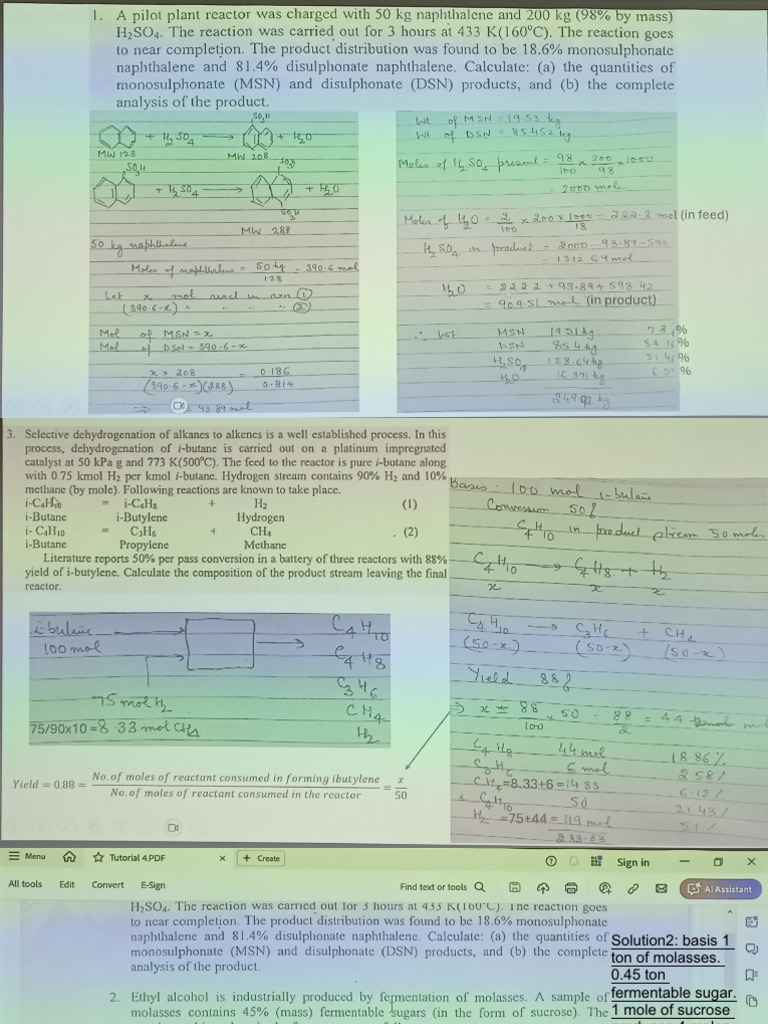 1. A pilot plant reactor was charged with 50 kg naphthalene and 200 kg (98% by mass)
H₂SO₄. The reaction was carried out for 3 hours at 433 K(160°C). The reaction goes
to near completion. The product distribution was found to be 18.6% monosulphonate
naphthalene and 81.4% disulphonate naphthalene. Calculate: (a) the quantities of
monosulphonate (MSN) and disulphonate (DSN) products, and (b) the complete
analysis of the product.
SO₃H
+ H₂SO₄ → + H₂O
MW 128 MW 208
SO₃H SO₃H
+ H₂SO₄ → + H₂O
SO₃H
MW 288
50 kg naphthalene
Moles of naphthalene = 50 kg / 128 = 390.6 mol
Let x mol react in rxn ①
(390.6-x) " " " " ②
Mol of MSN = x
Mol of DSN = 390.6 - x
x × 208 / (390.6-x)(288) = 0.186 / 0.814
⇒ x = 93.89 mol
Wt of MSN = 19.53 kg
Wt of DSN = 85.452 kg
Moles of H₂SO₄ present = 98/100 × 200/98 × 1000
= 2000 mole
Moles of H₂O = 2/100 × 200 × 1000/18 = 222.2 mol (in feed)
H₂SO₄ in product = 2000 - 93.89 - 593
= 1312.69 mol
H₂O = 222.2 + 93.89 + 593.42
= 909.51 mol (in product)
∴ Wt MSN 19.51 kg 7.8 %
DSN 85.4 kg %
H₂SO₄ 128.64 kg %
H₂O 16.371 kg %
249.92 kg
3. Selective dehydrogenation of alkanes to alkenes is a well established process. In this
process, dehydrogenation of i-butane is carried out on a platinum impregnated
catalyst at 50 kPa g and 773 K(500°C). The feed to the reactor is pure i-butane along
with 0.75 kmol H₂ per kmol i-butane. Hydrogen stream contains 90% H₂ and 10%
methane (by mole). Following reactions are known to take place.
i-C₄H₁₀ = i-C₄H₈ + H₂ (1)
i-Butane i-Butylene Hydrogen
i- C₄H₁₀ = C₃H₆ + CH₄ . (2)
i-Butane Propylene Methane
Literature reports 50% per pass conversion in a battery of three reactors with 88%
yield of i-butylene. Calculate the composition of the product stream leaving the final
reactor.
i-butane
100 mol
75 mol H₂
75/90x10 =8.33 mol CH₄
C₄H₁₀
C₄H₈
C₃H₆
CH₄
H₂
Yield = 0.88 = No.of moles of reactant consumed in forming ibutylene / No.of moles of reactant consumed in the reactor = x / 50
Basis: 100 mol i-butane
Conversion 50%
C₄H₁₀ in product stream 50 moles
C₄H₁₀ → C₄H₈ + H₂
x x x
C₄H₁₀ → C₃H₆ + CH₄
(50-x) (50-x) (50-x)
Yield 88%
⇒ x = 88/100 × 50 = 88/2 = 44
C₄H₈ 44 mol 18.86%
C₃H₆ 6 mol 2.58%
CH₄=8.33+6 =14.33 6.12%
C₄H₁₀ 50 21.43%
H₂ =75+44 = 119 mol 51%
233.33
Menu
Tutorial 4.PDF × + Create
Sign in
All tools Edit Convert E-Sign
Find text or tools
AI Assistant
H₂SO₄. The reaction was carried out for 3 hours at 433 K(160°C). The reaction goes
to near completion. The product distribution was found to be 18.6% monosulphonate
naphthalene and 81.4% disulphonate naphthalene. Calculate: (a) the quantities of
monosulphonate (MSN) and disulphonate (DSN) products, and (b) the complete
analysis of the product.
2. Ethyl alcohol is industrially produced by fermentation of molasses. A sample of
molasses contains 45% (mass) fermentable sugars (in the form of sucrose). The
Solution2: basis 1
ton of molasses.
0.45 ton
fermentable sugar.
1 mole of sucrose